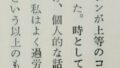 ンが上等のコ
た。時として
、個人的な話
私はよく過労
という以上のも